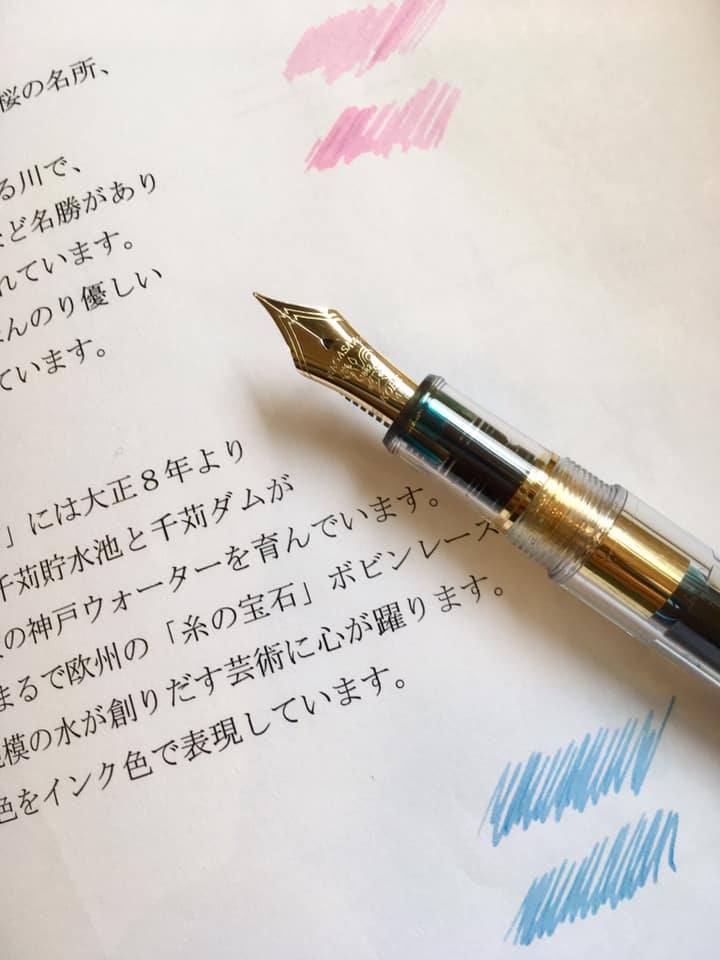 桜の名所、
る川で、
など名勝があり
れています。
んのり優しい
ています。
」には大正８年より
千苅貯水池と千苅ダムが
の神戸ウォーターを育んでいます。
まるで欧州の「糸の宝石」ボビンレース
模の水が創りだす芸術に心が躍ります。
色をインク色で表現しています。